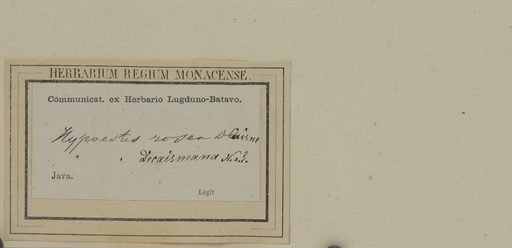 HERBARIUM REGIUM MONACENSE.
Communicat. ex Herbario Lugduno-Batavo.
Hypoestis rosea Decaisne
" " Decaisneana N.e.E.
Java.
Legit